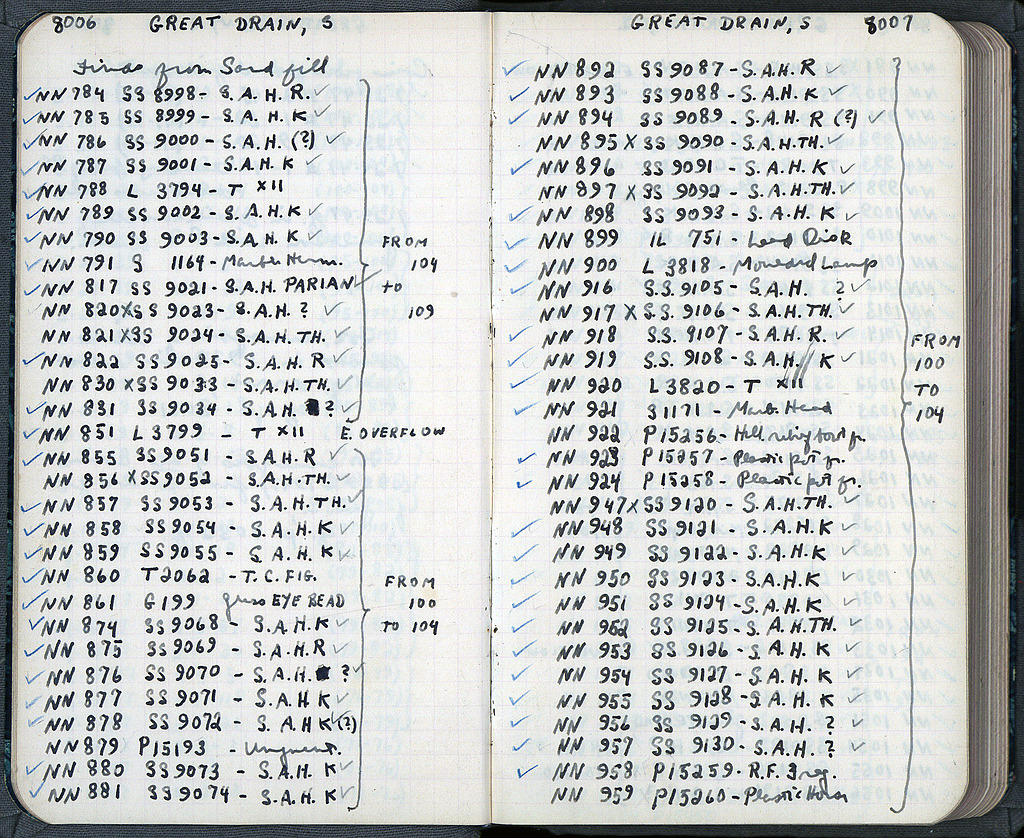 8006 GREAT DRAIN, S
Finds from Sand fill
NN 784 SS 8998 - S.A.H. R.
NN 785 SS 8999 - S.A.H. K
NN 786 SS 9000 - S.A.H. (?)
NN 787 SS 9001 - S.A.H. K
NN 788 L 3794 - T XII
NN 789 SS 9002 - S.A.H. K
NN 790 SS 9003 - S.A.H. K
NN 791 S 1164 - Marble Herm.
NN 817 SS 9021 - S.A.H. PARIAN
NN 820 X SS 9023 - S.A.H. ?
NN 821 X SS 9024 - S.A.H. TH.
NN 822 SS 9025 - S.A.H. R
NN 830 X SS 9033 - S.A.H. TH.
NN 831 SS 9034 - S.A.H. ?
FROM
104
to
109
NN 851 L 3799 - T XII E. OVERFLOW
NN 855 SS 9051 - S.A.H. R
NN 856 X SS 9052 - S.A.H. TH.
NN 857 SS 9053 - S.A.H. TH.
NN 858 SS 9054 - S.A.H. K
NN 859 SS 9055 - S.A.H. K
NN 860 T 2062 - T.C. FIG.
NN 861 G 199 glass EYE BEAD
NN 874 SS 9068 - S.A.H. K
NN 875 SS 9069 - S.A.H. R
NN 876 SS 9070 - S.A.H. ?
NN 877 SS 9071 - S.A.H. K
NN 878 SS 9072 - S.A.H. K (?)
NN 879 P 15193 - Unguent.
NN 880 SS 9073 - S.A.H. K
NN 881 SS 9074 - S.A.H. K
FROM
100
TO 104
GREAT DRAIN, S 8007
NN 892 SS 9087 - S.A.H. R
NN 893 SS 9088 - S.A.H. K
NN 894 SS 9089 - S.A.H. R (?)
NN 895 X SS 9090 - S.A.H. TH.
NN 896 SS 9091 - S.A.H. K
NN 897 X SS 9092 - S.A.H. TH.
NN 898 SS 9093 - S.A.H. K
NN 899 IL 751 - Lead Disk
NN 900 L 3818 - Mould Lamp
NN 916 S.S. 9105 - S.A.H. ?
NN 917 X S.S. 9106 - S.A.H. TH.
NN 918 S.S. 9107 - S.A.H. R.
NN 919 S.S. 9108 - S.A.H. K
NN 920 L 3820 - T XII
NN 921 S 1171 - Marb. Head
NN 922 P 15256 - Hell.
NN 923 P 15257 - Plastic pot fr.
NN 924 P 15258 - Plastic pot fr.
NN 947 X SS 9120 - S.A.H. TH.
NN 948 SS 9121 - S.A.H. K
NN 949 SS 9122 - S.A.H. K
NN 950 SS 9123 - S.A.H. K
NN 951 SS 9124 - S.A.H. K
NN 952 SS 9125 - S.A.H. TH.
NN 953 SS 9126 - S.A.H. K
NN 954 SS 9127 - S.A.H. K
NN 955 SS 9128 - S.A.H. K
NN 956 SS 9129 - S.A.H. ?
NN 957 SS 9130 - S.A.H. ?
NN 958 P 15259 - R.F. Frg.
NN 959 P 15260 - Plastic Horse
FROM
100
TO
104